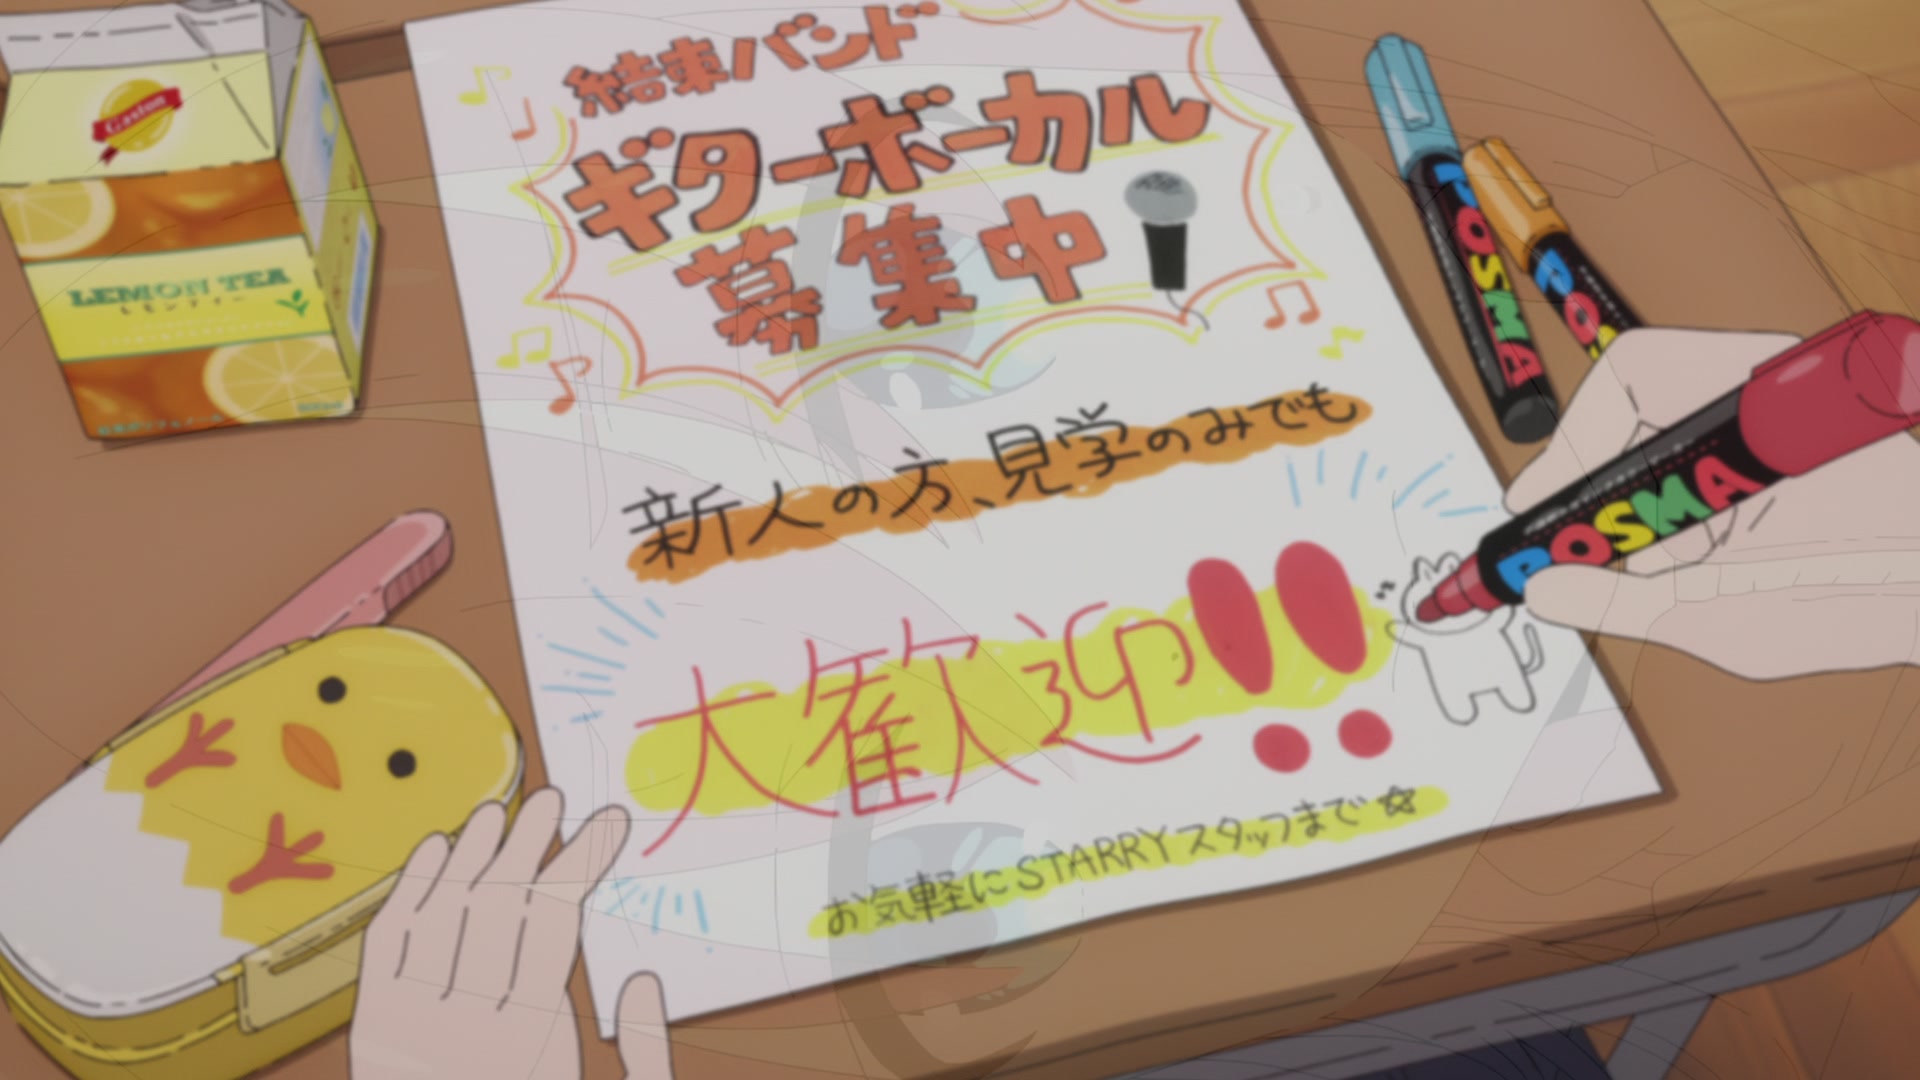 結束バンド
ギターボーカル
募集中
新人の方、見学のみでも
大歓迎!!
お気軽にSTARRYスタッフまで☆
LEMON TEA
レモンティー
POSMA
POS
POSMA